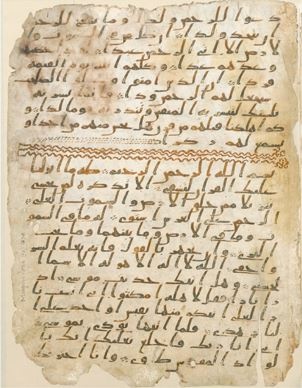 دعوا للرحمن ولدا وما ينبغي للرحمن
ان يتخذ ولدا ان كل من في السموت وا
لارض الا اتي الرحمن عبدا لقد احصيهم
وعدهم عدا وكلهم اتيه يوم القيمة
فردا ان الذين امنوا وعملوا الصلحت
سيجعل لهم الرحمن ودا فانما يسرنه
بلسنك لتبشر به المتقين وتنذر به قوما لدا و
كم اهلكنا قبلهم من قرن هل تحس منهم من احد او
تسمع لهم ركزا
بسم الله الرحمن الرحيم طه ما انزلنا
عليك القران لتشقى الا تذكرة لمن يخشى
تنزيلا ممن خلق الارض والسموت العلى
الرحمن على العرش استوى له ما في السمو
ت وما في الارض وما بينهما وما تحت
الثرى وان تجهر بالقول فانه يعلم السر
واخفى الله لا اله الا هو له الاسما ا
لحسنى وهل اتيك حديث موسى اذ
را نارا فقال لاهله امكثوا اني انست نا
را لعلي اتيكم منها بقبس او اجد على ا
لنار هدى فلما اتيها نودي يموسى
اني انا ربك فاخلع نعليك انك با
لواد المقدس طوى وانا اخترتك